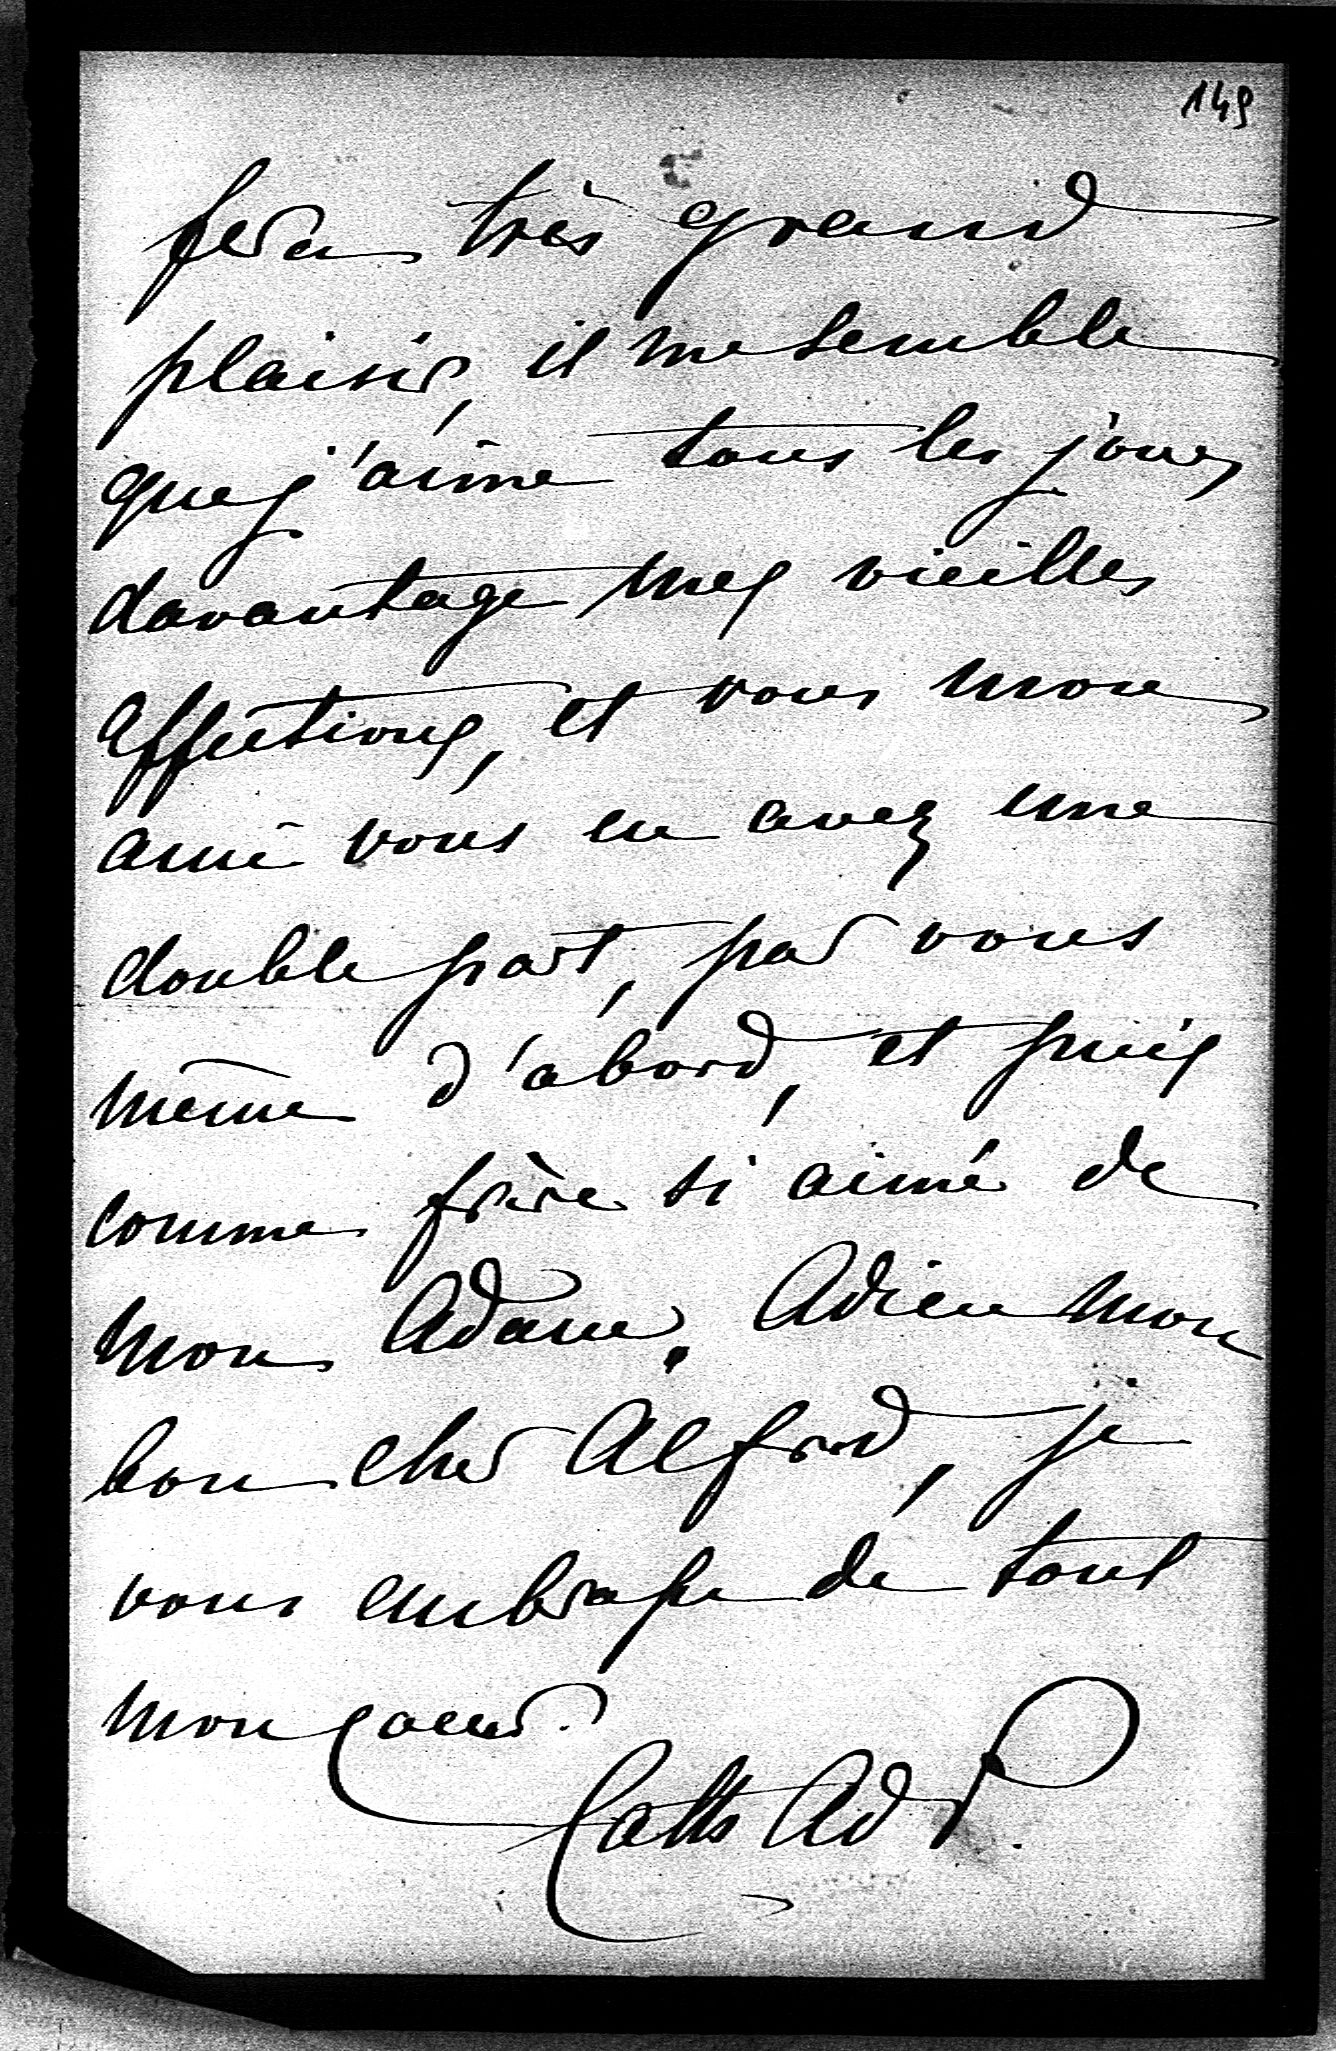 149
fera très grand
plaisir, il me semble
que j'aime tous les jours
davantage mes vieilles
affections, et vous mon
ami vous en avez une
double part, par vous
même d'abord, et puis
comme frère si aimé de
mon Adam. Adieu mon
bon cher Alfred, je
vous embrasse de tout
mon coeur.
Catts Ad P.